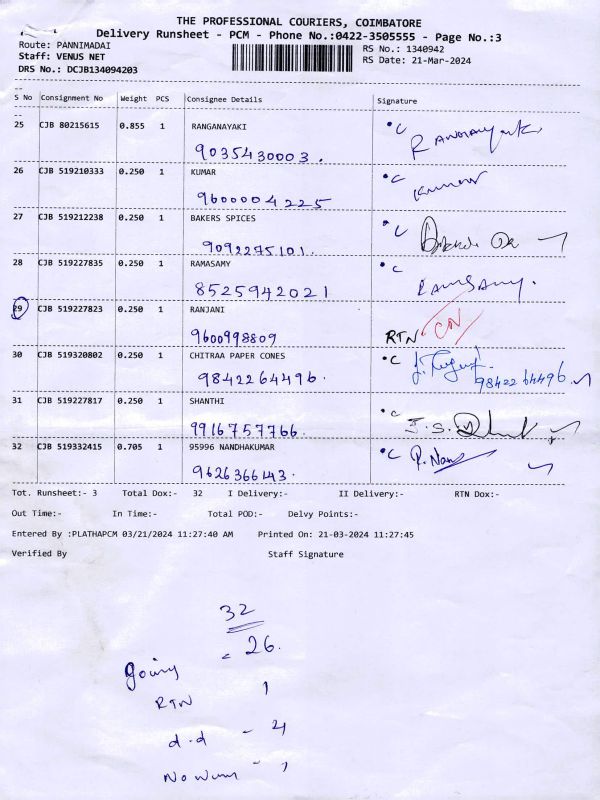 THE PROFESSIONAL COURIERS, COIMBATORE
Delivery Runsheet - PCM - Phone No.:0422-3505555 - Page No.:3
Route: PANNIMADAI RS No.: 1340942
Staff: VENUS NET RS Date: 21-Mar-2024
DRS No.: DCJB134094203
S No Consignment No Weight PCS Consignee Details Signature
25 CJB 80215615 0.855 1 RANGANAYAKI
9035430003.
26 CJB 519210333 0.250 1 KUMAR
9600004225
27 CJB 519212238 0.250 1 BAKERS SPICES
9092275101.
28 CJB 519227835 0.250 1 RAMASAMY
8525942021
29 CJB 519227823 0.250 1 RANJANI
9600998809 RTN
30 CJB 519320802 0.250 1 CHITRAA PAPER CONES
9842264496. 9842264496
31 CJB 519227817 0.250 1 SHANTHI
9916757766
32 CJB 519332415 0.705 1 95996 NANDHAKUMAR
9626366143
Tot. Runsheet:- 3 Total Dox:- 32 I Delivery:- II Delivery:- RTN Dox:-
Out Time:- In Time:- Total POD:- Delvy Points:-
Entered By :PLATHAPCM 03/21/2024 11:27:40 AM Printed On: 21-03-2024 11:27:45
Verified By Staff Signature
32
26.
RTN 1
d.d - 4